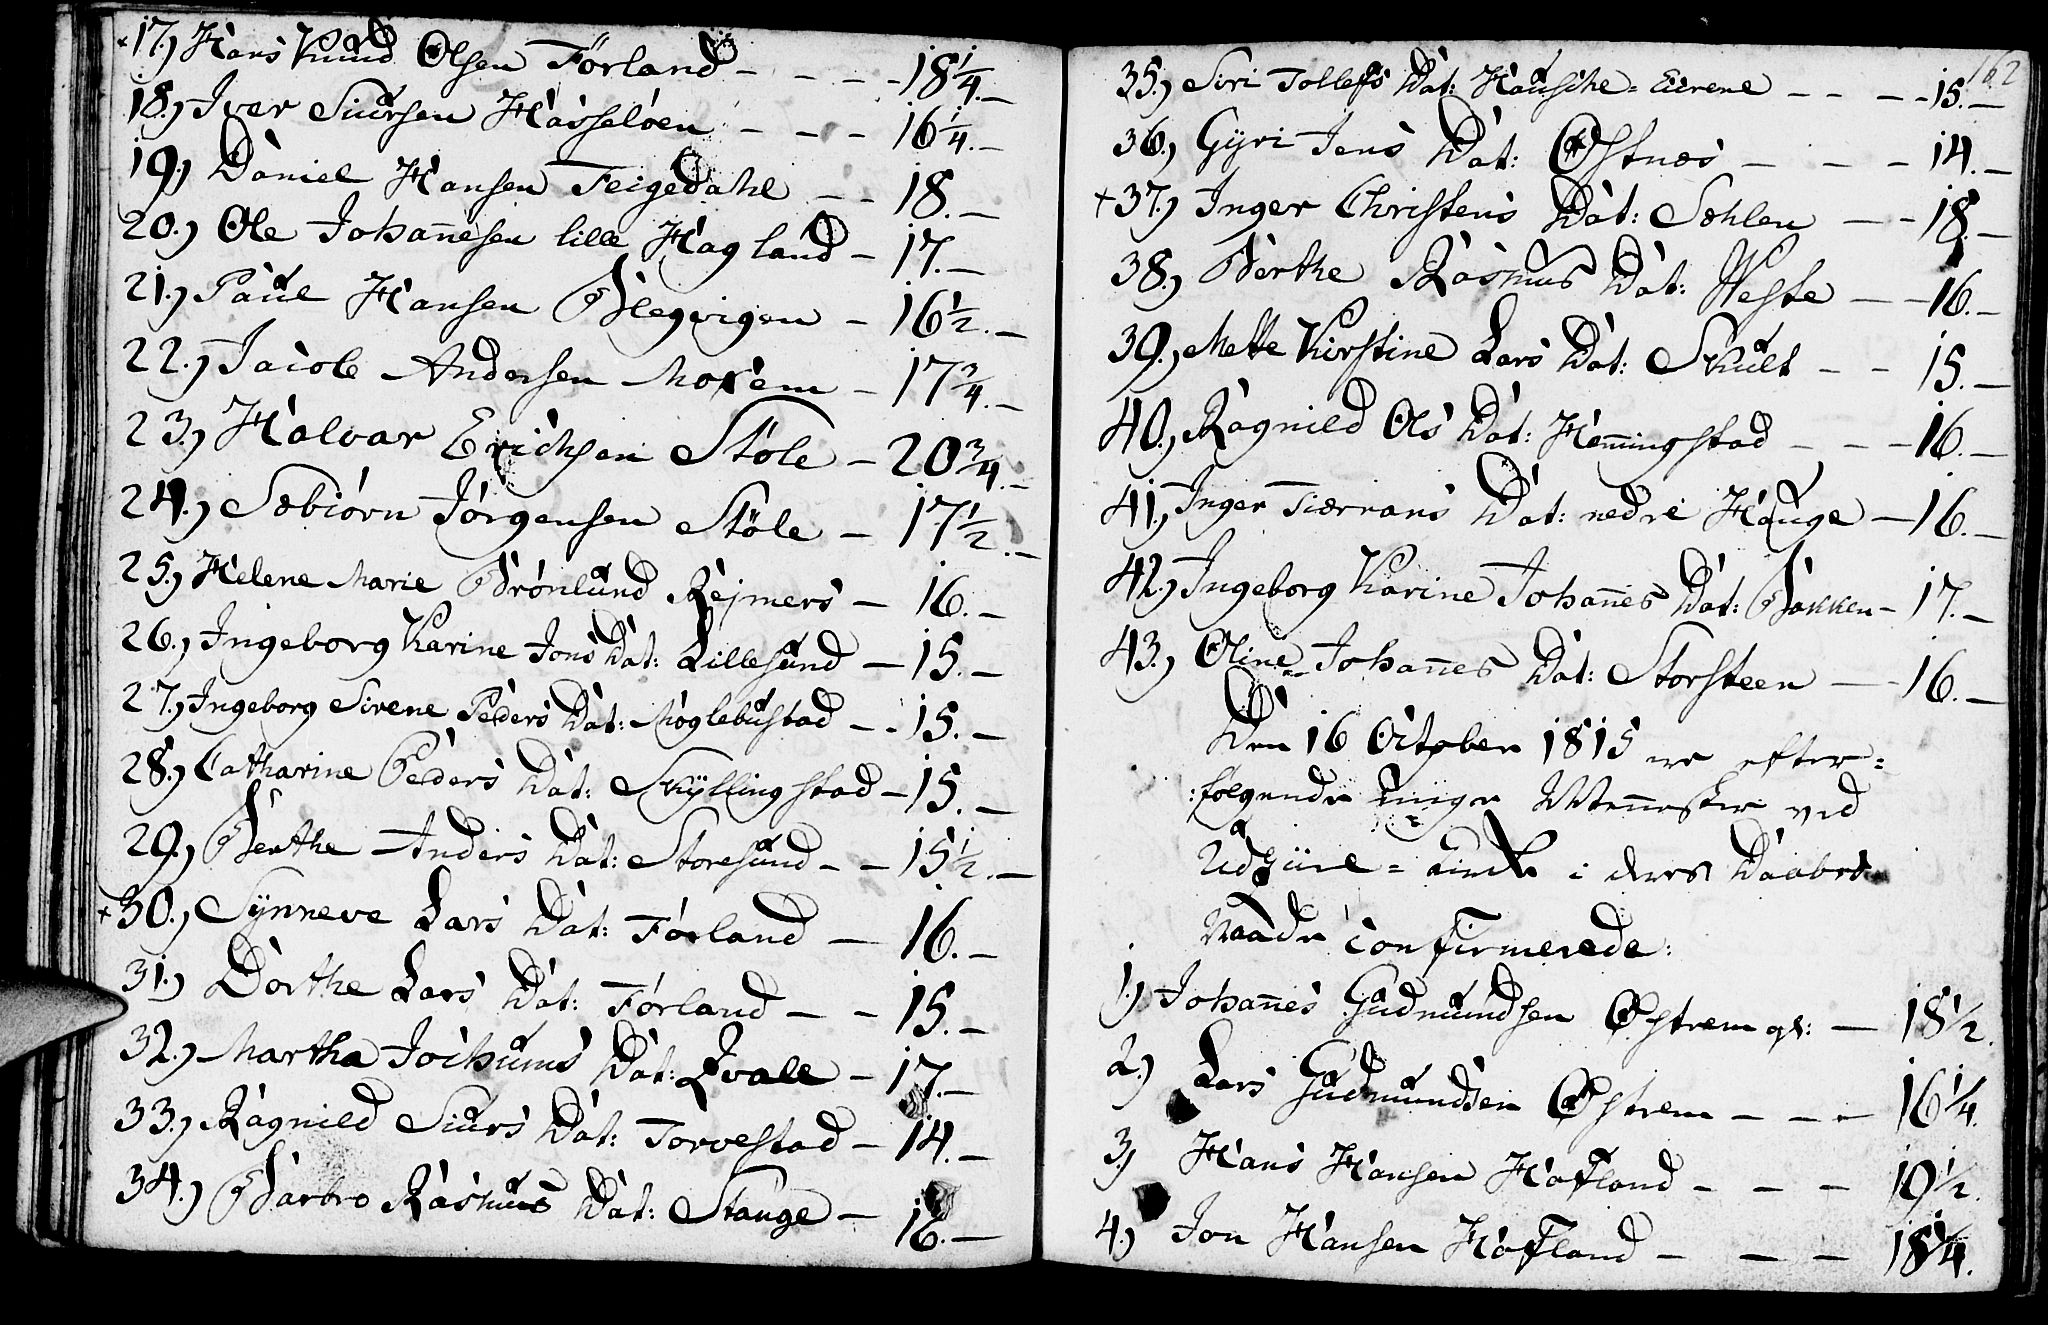 +17.) Hans Knud Olsen Førland - - - - 18 1/4. -
18.) Iver Siursen Hasseløen - - - 16 1/4. -
19.) Daniel Hansen Feigedahl - - 18. -
20.) Ole Johan̄esen lille Hagland - 17. -
21.) Paul Hansen Blegvigen - 16 1/2. -
22.) Jacob Andersen Moxem - 17 3/4. -
23.) Halvar Erichsen Støle - 20 3/4. -
24.) Sæbiørn Jørgensen Støle - 17 1/2. -
25.) Helene Marie Brønlund Rejmers - 16. -
26.) Ingeborg Karine Jons Dat: Lillesund - 15. -
27.) Ingeborg Sirene Peders Dat: Møglebustad - - 15. -
28.) Catharine Peders Dat: Skyllingstad - 15. -
29.) Berthe Anders Dat: Storesund - - 15 1/2. -
+30.) Synneve Lars Dat: Førland - 16. -
31.) Dorthe Lars Dat: Førland - - 15. -
32.) Martha Jochums Dat: Qvale - 17. -
33.) Ragnild Siurs Dat: Torvestad - 14. -
34.) Barbro Rasmus Dat: Stange - 16. -
162
35.) Siri Tollefs Dat: Hausche-Eierene - - - - 15. -
36.) Gyri Jens Dat: Østnes - - - 14. -
+37.) Inger Christens Dat: Sæhlen - - 18. -
38.) Berthe Rasmus Dat: Weste - - 16. -
39.) Mette Kirstine Lars Dat: Skult - - 15. -
40.) Ragnild Ols Dat: Hem̄ingstad - - - 16. -
41.) Inger Tiærrans Dat: nedre Hauge - 16. -
42.) Ingeborg Karine Johan̄es Dat: Bakken - 17. -
43.) Oline Johan̄es Dat: Storsteen - - 16. -
Den 16 October 1815 ere efter=
:følgende unge Men̄esker ved
Udziire = Kirke i deres Daabes
Naade confirmerede:
1.) Johan̄es Gudmundsen Østrem gl: - 18 1/2.
2.) Lars Gudmundsen Østrem - - - 16 1/4.
3.) Hans Hansen Hafland - - - 19 1/2.
4.) Jon Hansen Hafland - - - 18 1/4.